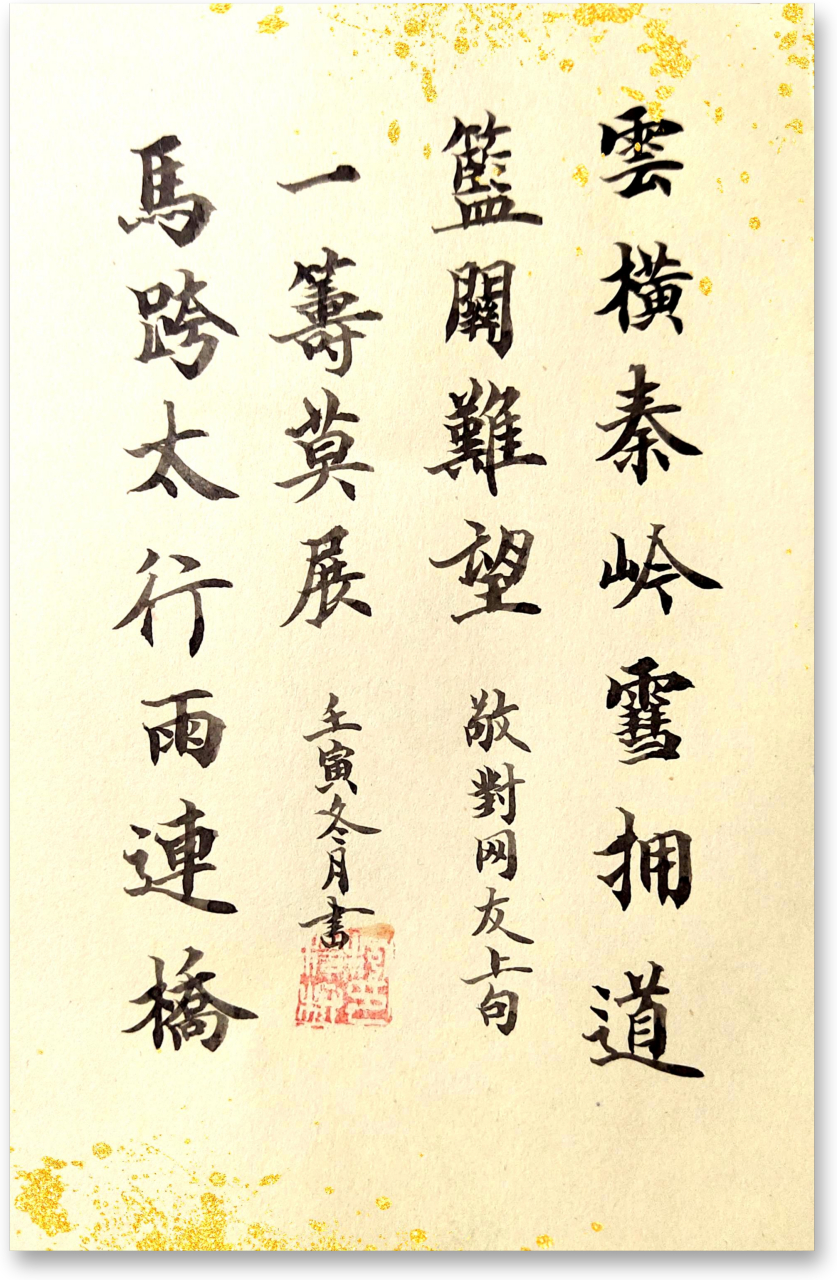 雲橫秦岭雪拥道
籃關難望
敬對网友上句
一籌莫展
壬寅冬月書
馬跨太行雨連橋